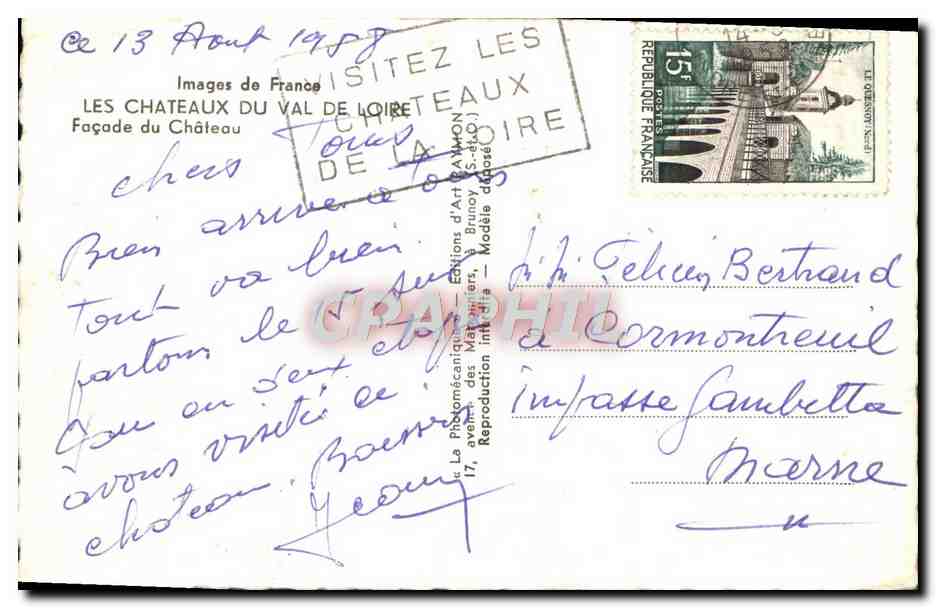 ce 13 Aout 1958
Images de France
LES CHATEAUX DU VAL DE LOIRE
Façade du Château
VISITEZ LES
CHATEAUX
DE LA LOIRE
15F
POSTES
REPUBLIQUE FRANÇAISE
LE QUESNOY (Nord)
chers Tous
Bien arrivé à
Tout va bien.
partons le
en deux
avons visité ce
chateau. Baisers
« La Photomécanique » — Editions d'Art RAYMON
17, avenue des Marronniers, à Brunoy (S.-et-O.)
Reproduction interdite — Modèle déposé
CPAPHIL
Félicien Bertrand
à Cormontreuil
impasse Gambetta
Marne